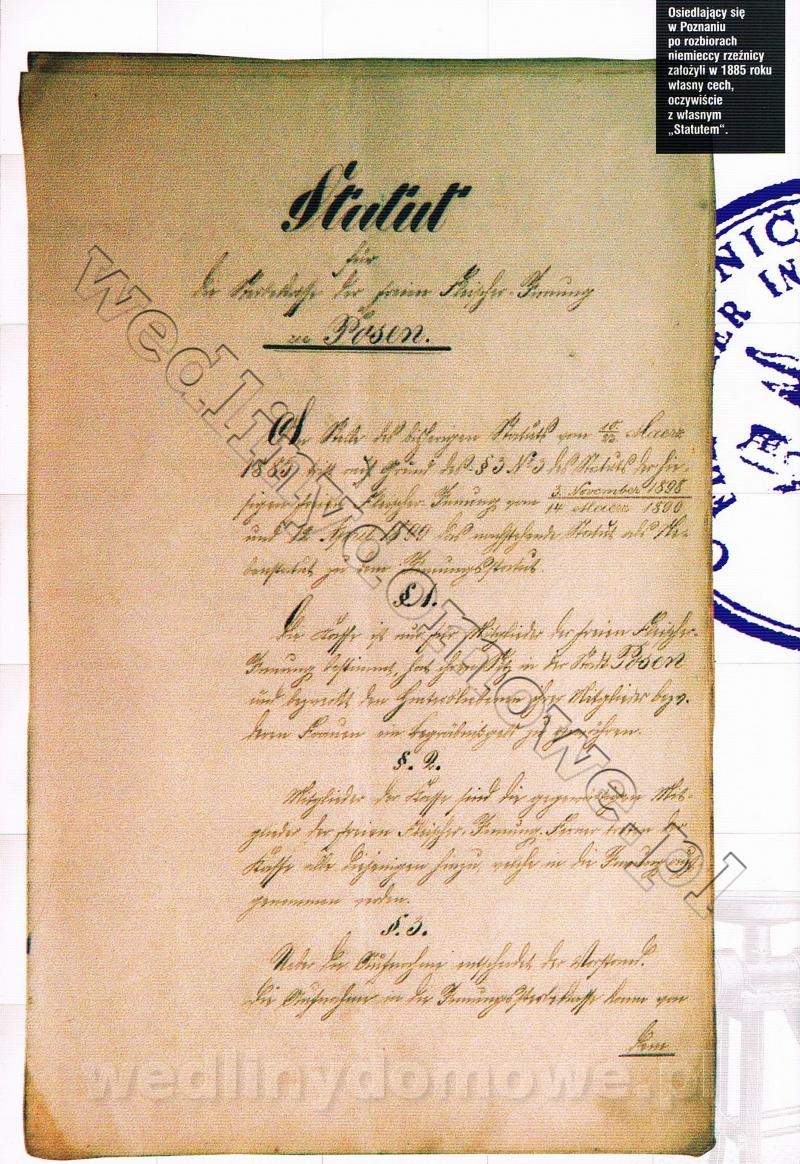 Osiedlający się
w Poznaniu
po rozbiorach
niemieccy rzeźnicy
założyli w 1885 roku
własny cech,
oczywiście
z własnym
„Statutem”.
Statut
für
die Sterbekasse der freien Fleischer-Innung
zu Posen.
An Stelle des bisherigen Statuts vom 10/22 Maerz
1885 tritt auf Grund des § 3 No 3 des Statuts der hie-
sigen freien Fleischer-Innung vom 3. November 1898 / 14 Maerz 1890
und 12 April 1890 das nachstehende Statut als Ne-
benstatut zu dem Innungsstatut.
§ 1.
Die Kasse ist nur für Mitglieder der freien Fleischer-
Innung bestimmt, hat ihren Sitz in der Stadt Posen
und bezweckt den Hinterbliebenen ihrer Mitglieder bezw.
deren Frauen ein Begräbnisgeld zu gewähren.
§. 2.
Mitglieder der Kasse sind die gegenwärtigen Mit-
glieder der freien Fleischer-Innung. Ferner treten der
Kasse alle diejenigen hinzu, welche in die Innung auf-
genommen werden.
§. 3.
Ueber die Aufnahme entscheidet der Vorstand.
Die Aufnahme in die Innungssterbekasse kann von
dem
NIC
ER IN
wedlinydomowe.pl
wedlinydomowe.pl